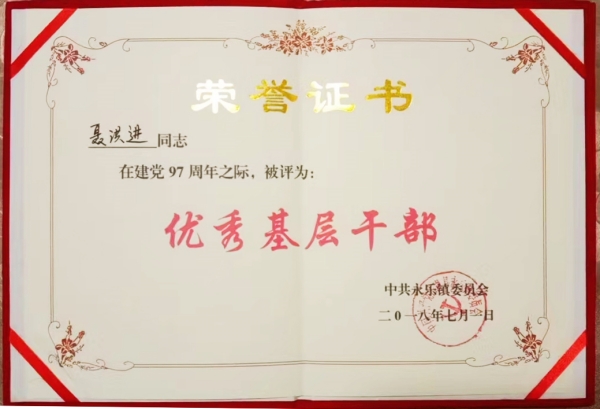 荣誉证书
聂洪进 同志
在建党 97 周年之际，被评为：
优秀基层干部
中共永乐镇委员会
二0一八年七月一日